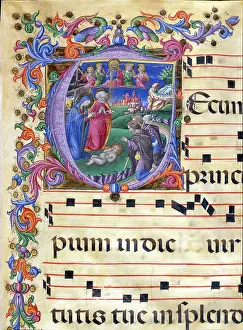 Tecum
princ
pium in die uir
tutis tue in splend